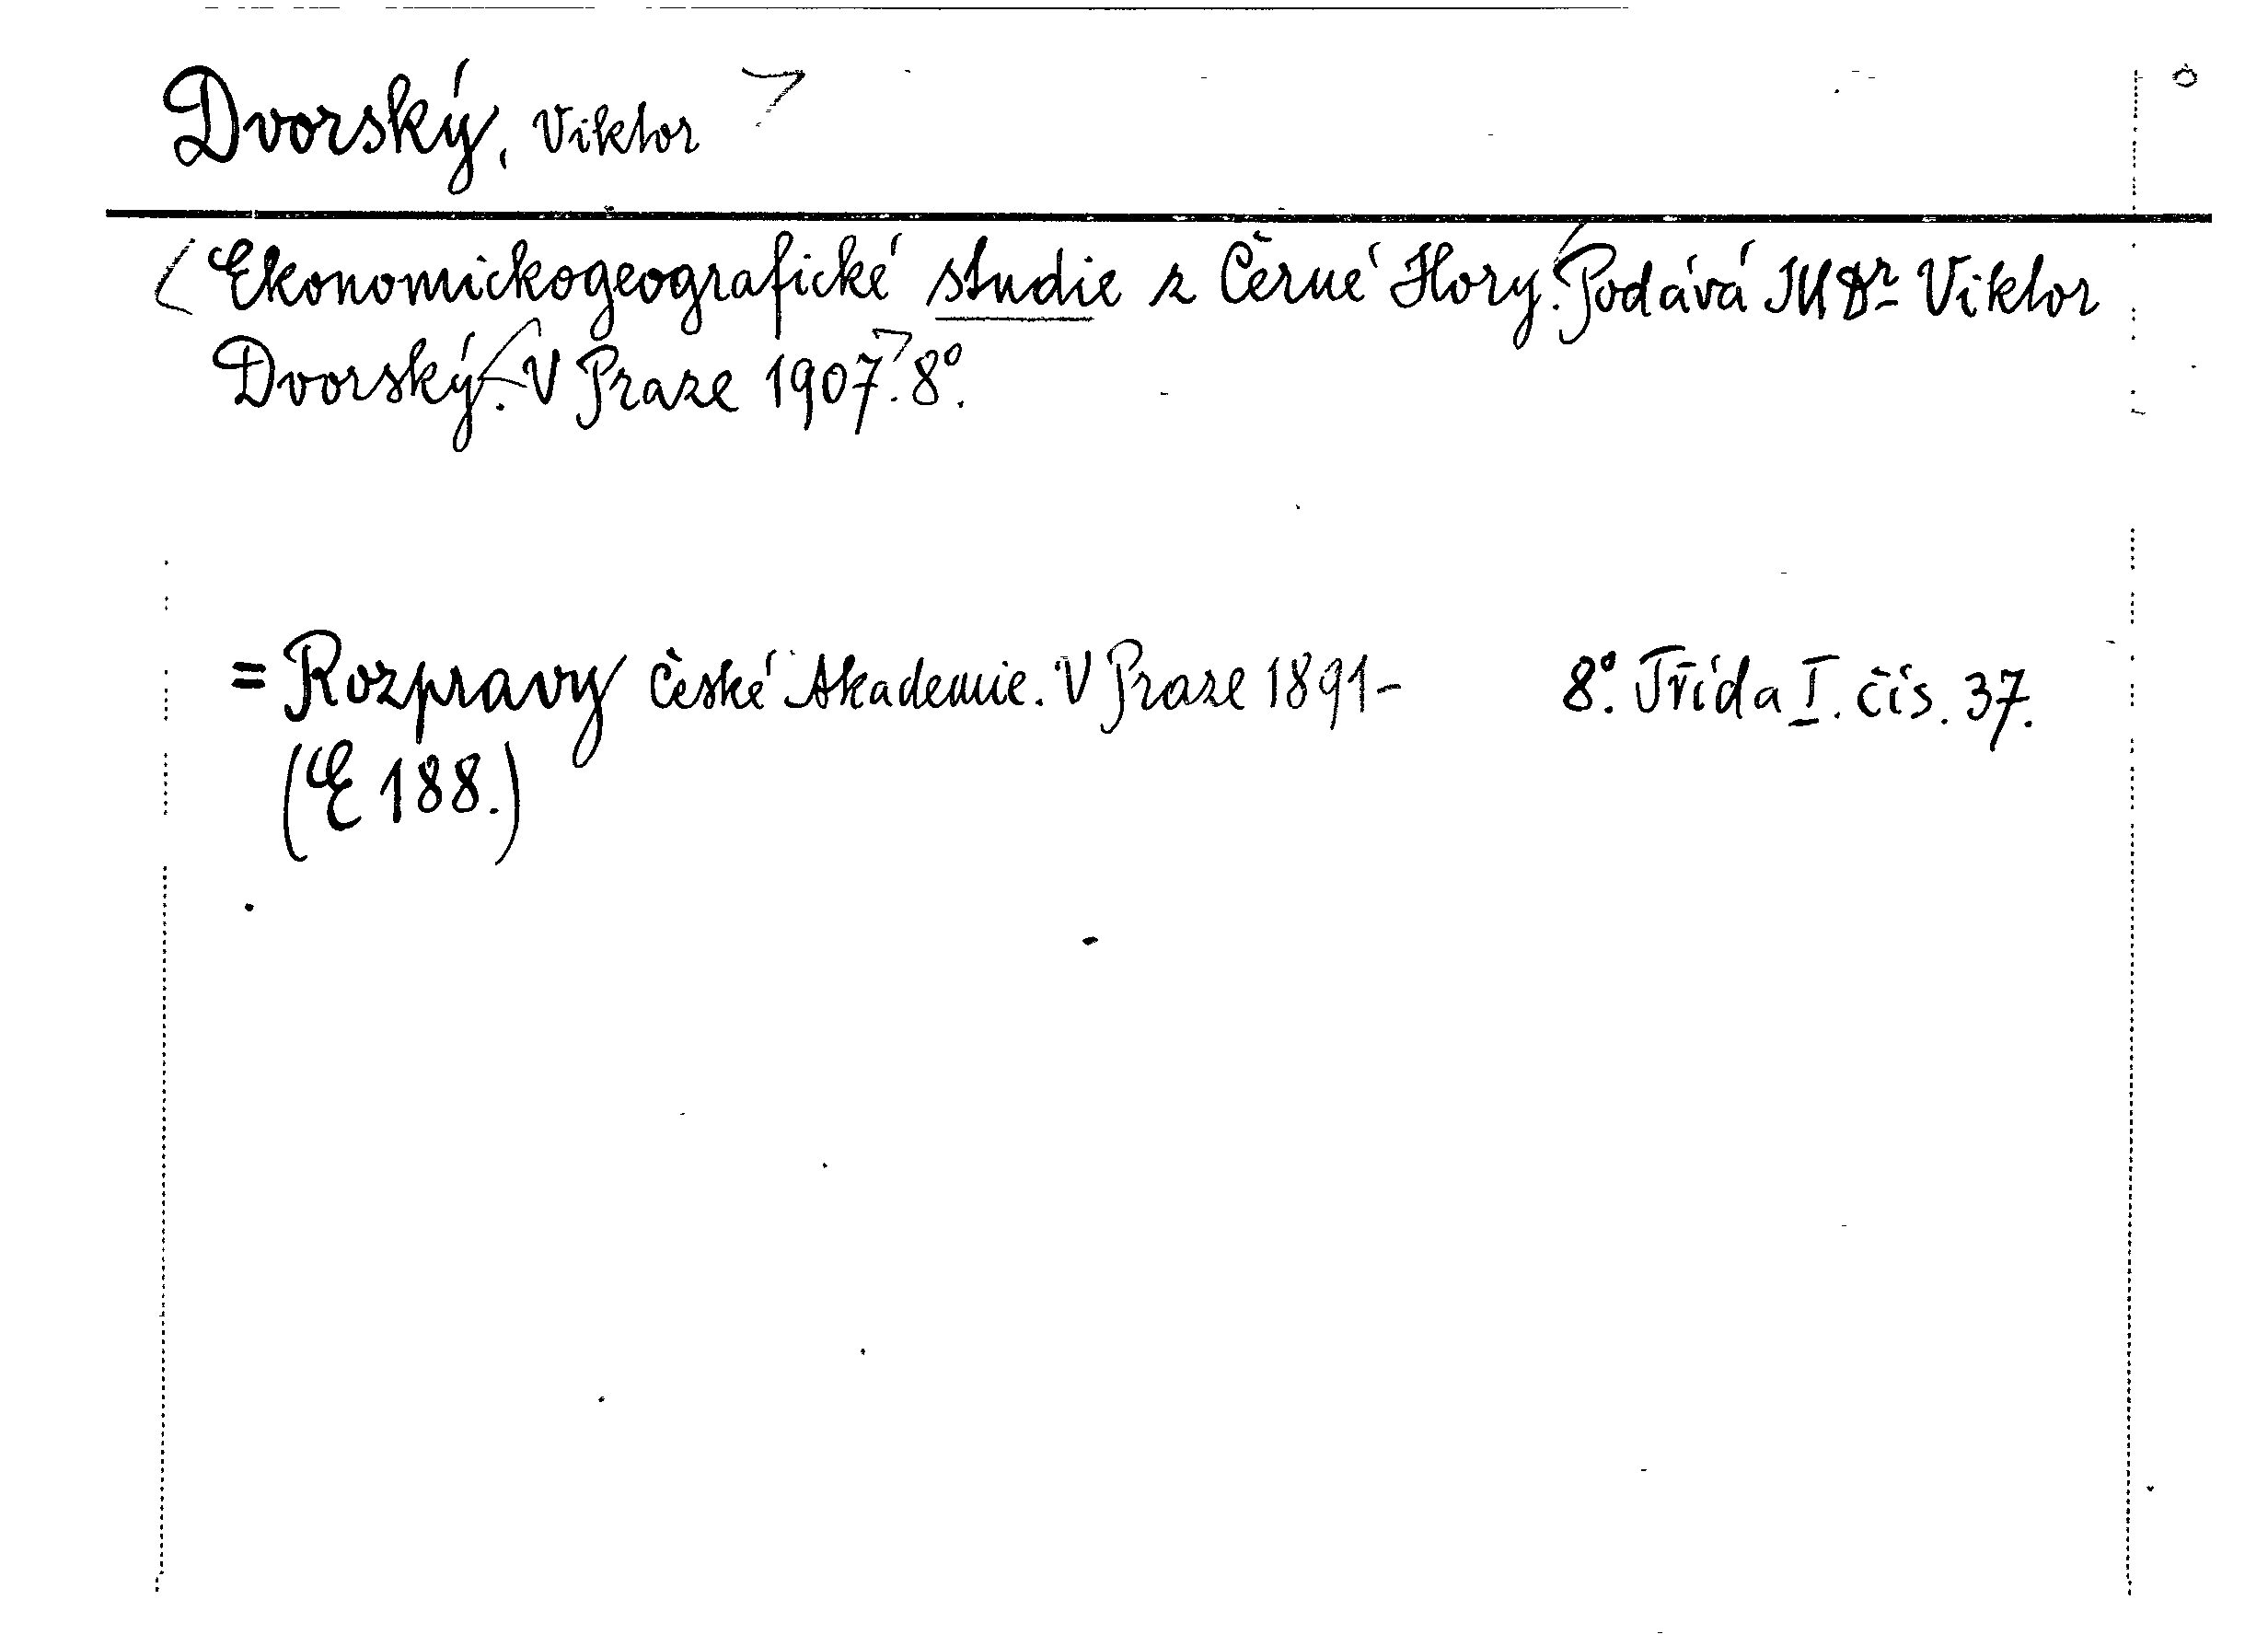 Dvorský, Viktor
Ekonomickogeografické studie z Černé Hory. Podává Dr Viktor
Dvorský. V Praze 1907. 8º.
= Rozpravy České Akademie. V Praze 1891- 8º. Třída I. čís. 37.
(E 188.)